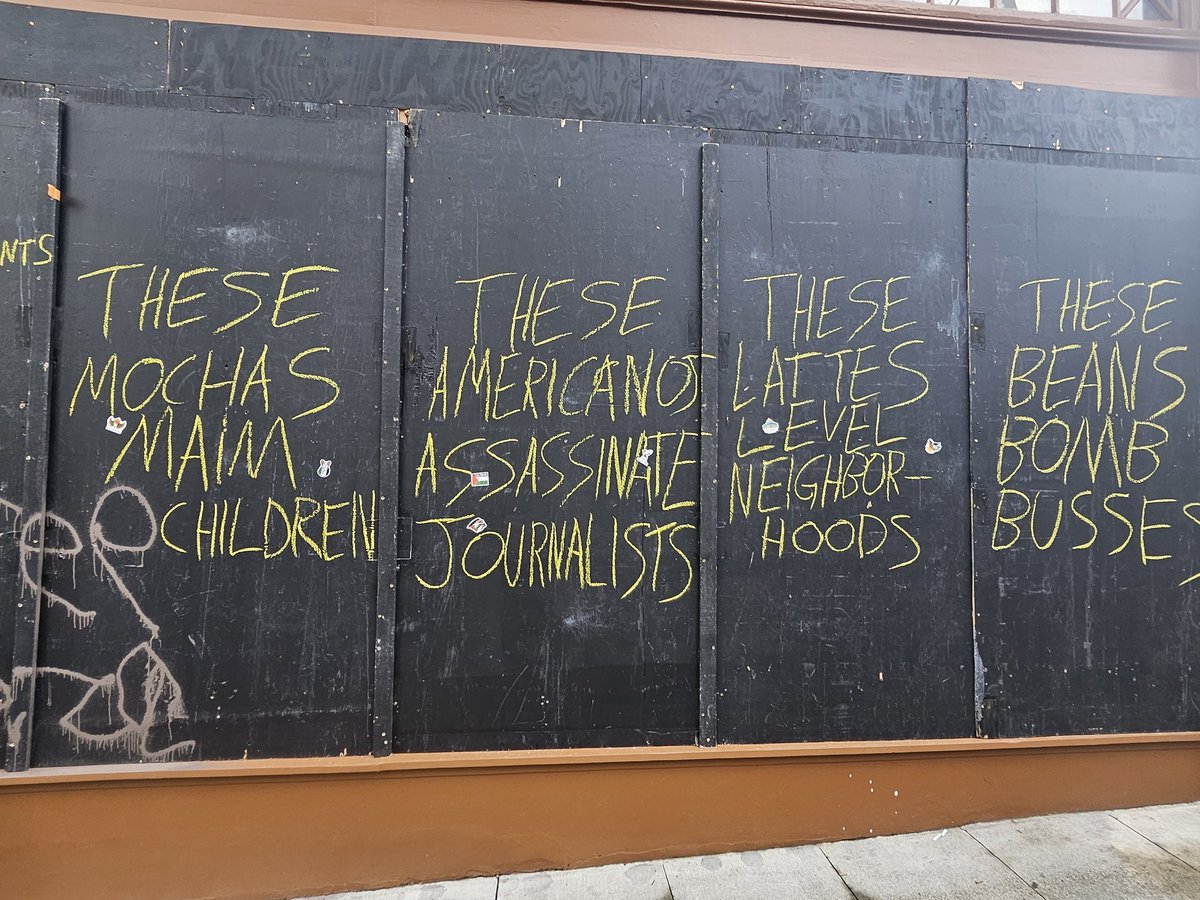 NTS
THESE
MOCHAS
MAIM
CHILDREN
THESE
AMERICANOS
ASSASSINATE
JOURNALISTS
THESE
LATTES
LEVEL
NEIGHBOR-
HOODS
THESE
BEANS
BOMB
BUSSES